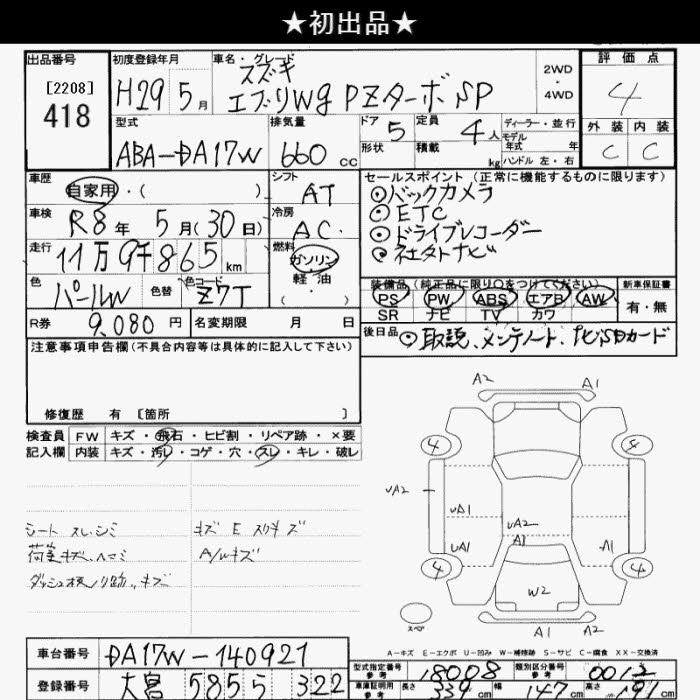 ★初出品★
出品番号
[2208]
418
初度登録年月
H29 5月
車名・グレード
スズキ
エブリWg PZターボSP
2WD
4WD
評価点
4
外装 内装
C C
型式
ABA-DA17W
排気量
660 cc
ドア
5
形状
定員
4人
積載
kg
ディーラー・並行
モデル
年式 年
ハンドル 左・右
車歴
自家用・( )
シフト
AT
車検
R8年 5月(30日)
冷房
AC
走行
11万9千865km
燃料
ガソリン
軽油
( )
色
パールW
色替
色コード
Z7T
R券
9,080円
名変期限 月 日
セールスポイント(正常に機能するものに限ります)
◎バックカメラ
◎ETC
◎ドライブレコーダー
◎社外ナビ
装備品(純正品に限り○をつけてください)
PS PW ABS エアB AW
SR ナビ TV カワ
新車保証書
有・無
後日品
◎取説、メンテノート、ナビSDカード
注意事項申告欄(不具合内容等は具体的に記入して下さい)
修復歴 有 [箇所 ]
検査員
記入欄
FW キズ・飛石・ヒビ割・リペア跡・×要
内装 キズ・汚レ・コゲ・穴・スレ・キレ・破レ
シート スレ、シミ
荷室キズ、ヘコミ
ダッシュ板ノリ跡、キズ
キズ E スリキズ
A/Wキズ
A2 A1
4 4
UA2
UA1
UA2
A1
UA1
A1
4 4
W2
スペア
A1 A2
A-キズ E-エクボ U-凹み W-補修跡 S-サビ C-腐食 XX-交換済
車台番号
DA17W-140921
登録番号
大宮 585 5 322
型式指定番号
参考
18008
類別区分番号
参考
0013
車庫証明用
参考
長さ
339cm
幅
147cm
高さ
191